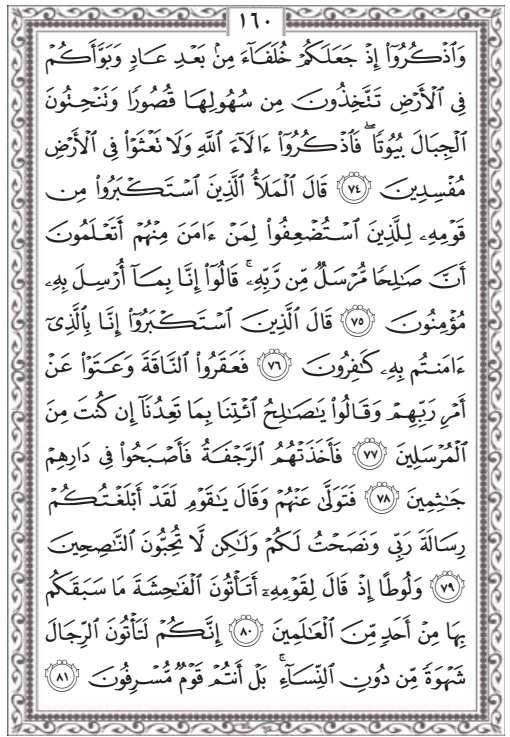 ١٦٠
وَٱذۡكُرُوٓاْ إِذۡ جَعَلَكُمۡ خُلَفَآءَ مِنۢ بَعۡدِ عَادٖ وَبَوَّأَكُمۡ
فِي ٱلۡأَرۡضِ تَتَّخِذُونَ مِن سُهُولِهَا قُصُورٗا وَتَنۡحِتُونَ
ٱلۡجِبَالَ بُيُوتٗاۖ فَٱذۡكُرُوٓاْ ءَالَآءَ ٱللَّهِ وَلَا تَعۡثَوۡاْ فِي ٱلۡأَرۡضِ
مُفۡسِدِينَ ٧٤ قَالَ ٱلۡمَلَأُ ٱلَّذِينَ ٱسۡتَكۡبَرُواْ مِن
قَوۡمِهِۦ لِلَّذِينَ ٱسۡتُضۡعِفُواْ لِمَنۡ ءَامَنَ مِنۡهُمۡ أَتَعۡلَمُونَ
أَنَّ صَٰلِحٗا مُّرۡسَلٞ مِّن رَّبِّهِۦۚ قَالُوٓاْ إِنَّا بِمَآ أُرۡسِلَ بِهِۦ
مُؤۡمِنُونَ ٧٥ قَالَ ٱلَّذِينَ ٱسۡتَكۡبَرُوٓاْ إِنَّا بِٱلَّذِيٓ
ءَامَنتُم بِهِۦ كَٰفِرُونَ ٧٦ فَعَقَرُواْ ٱلنَّاقَةَ وَعَتَوۡاْ عَنۡ
أَمۡرِ رَبِّهِمۡ وَقَالُواْ يَٰصَٰلِحُ ٱئۡتِنَا بِمَا تَعِدُنَآ إِن كُنتَ مِنَ
ٱلۡمُرۡسَلِينَ ٧٧ فَأَخَذَتۡهُمُ ٱلرَّجۡفَةُ فَأَصۡبَحُواْ فِي دَارِهِمۡ
جَٰثِمِينَ ٧٨ فَتَوَلَّىٰ عَنۡهُمۡ وَقَالَ يَٰقَوۡمِ لَقَدۡ أَبۡلَغۡتُكُمۡ
رِسَالَةَ رَبِّي وَنَصَحۡتُ لَكُمۡ وَلَٰكِن لَّا تُحِبُّونَ ٱلنَّٰصِحِينَ
٧٩ وَلُوطًا إِذۡ قَالَ لِقَوۡمِهِۦٓ أَتَأۡتُونَ ٱلۡفَٰحِشَةَ مَا سَبَقَكُم
بِهَا مِنۡ أَحَدٖ مِّنَ ٱلۡعَٰلَمِينَ ٨٠ إِنَّكُمۡ لَتَأۡتُونَ ٱلرِّجَالَ
شَهۡوَةٗ مِّن دُونِ ٱلنِّسَآءِۚ بَلۡ أَنتُمۡ قَوۡمٞ مُّسۡرِفُونَ ٨١